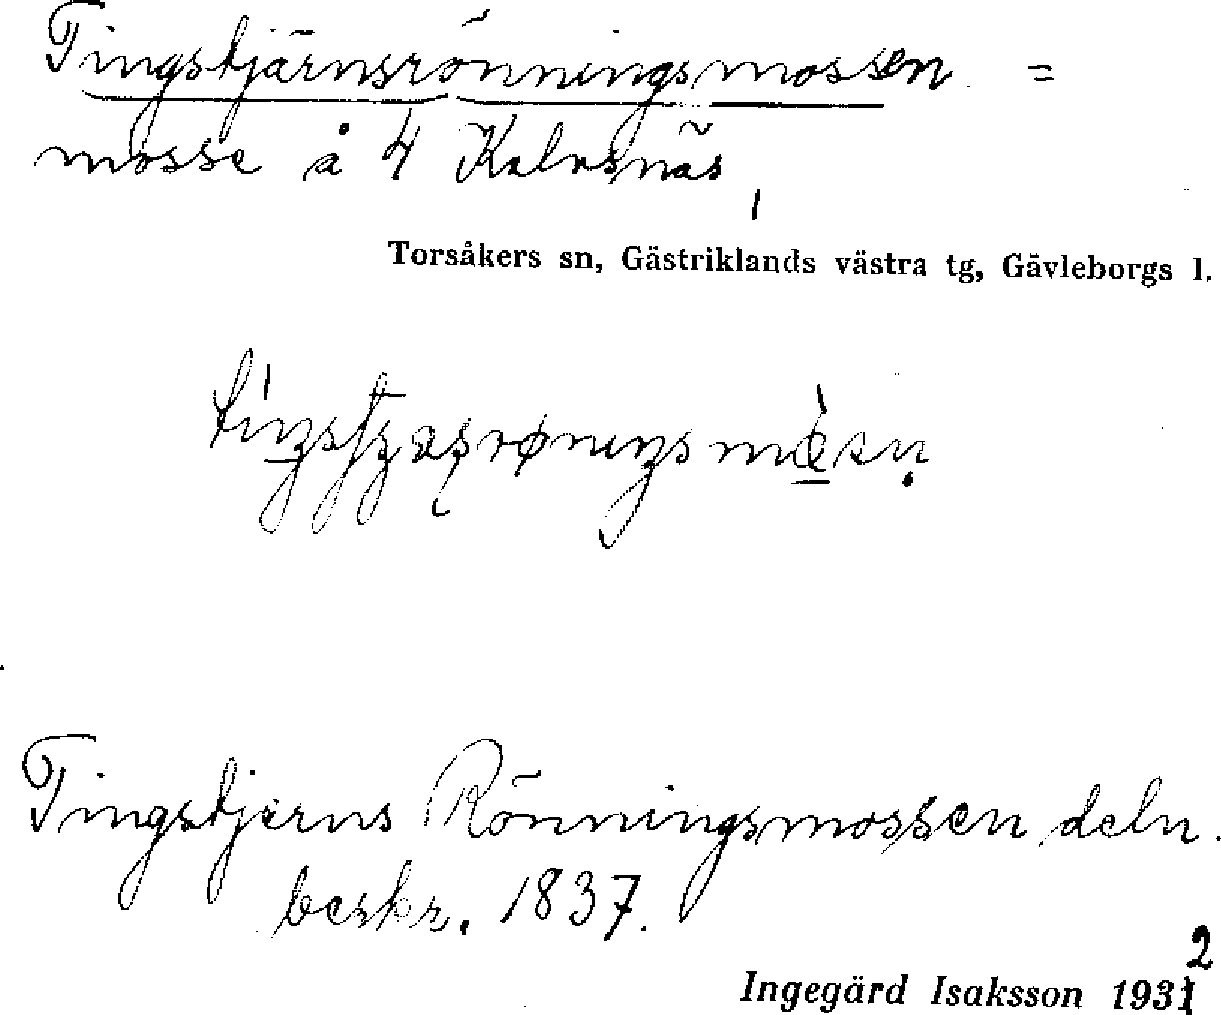 Tingstjärnsrönningsmossen =
mosse å 4 Kalvsnäs,
Torsåkers sn, Gästriklands västra tg, Gävleborgs l.
Tingstjerns Rönningsmossen deln.
beskr. 1837.
Ingegärd Isaksson 1932